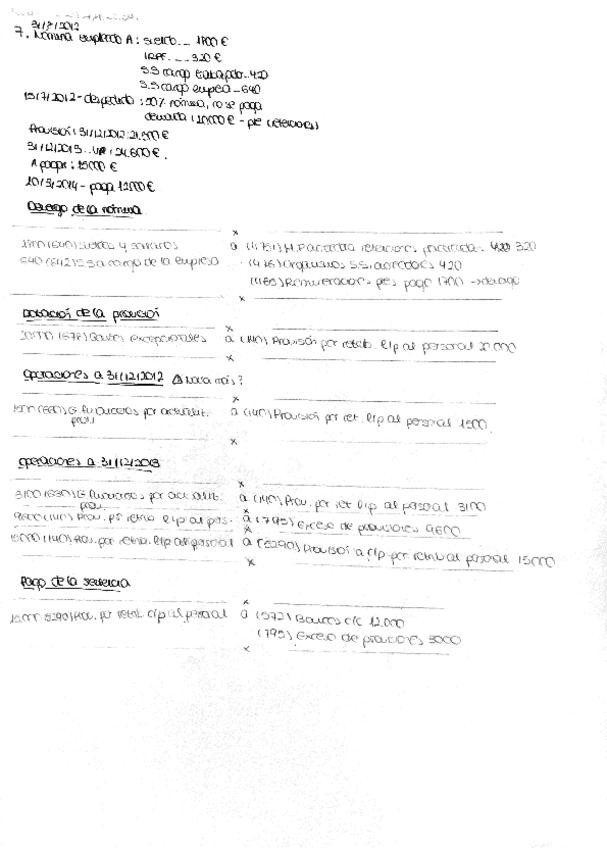 31/7/2012
7. Nómina empleado A: sueldo... 1700 €
IRPF... 320 €
S.S cargo trabajador 420
S.S cargo empresa - 640
15/7/2012 - despedido: 50% nómina, no se paga
demanda: 20000 € - pte
Provisión: 31/12/2012: 21.500 €
31/12/2013... : 24.600 €.
A pagar: 15000 €
20/3/2014 - paga 12000 €
Devengo de la nómina
x
(640) Sueldos y salarios a (4751) H.P acreedora retenciones practicadas 320
640 (642) S.S a cargo de la empresa (476) Organismos S.S. acreedores 420
(465) Remuneraciones ptes pago 1700 → devengo
x
Dotación de la provisión
x
20000 (678) Gastos excepcionales a (140) Provisión por retrib. l/p al personal 20.000
x
Operaciones a 31/12/2012 más?
x
1500 (660) G. financieros por actualit. a (140) Provisión por ret. l/p al personal 1500.
prov
x
Operaciones a 31/12/2013
x
3100 G. financieros por act. a (140) Prov. por ret l/p al personal 3100
prov. x
9600 (140) Prov. por retrib l/p al pers. a (795) Exceso de provisiones 9600
x
15000 (140) Prov. por retrib. l/p al personal a (5290) Provisión a c/p por retrib al personal 15000
x
Pago de la sentencia
x
15000 5290 Prov. por retrib c/p al personal a (572) Bancos c/c 12.000
(795) Exceso de provisiones 3000
x